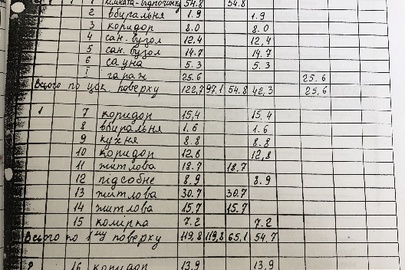 1 кімната-відпочинку 54.8 54.8
2 вбиральня 1.9 1.9
3 коридор 8.0 8.0
4 сан. вузол 12.4 12,4
5 сан. вузол 14.7 14.7
6 сауна 5.3 5.3
I гараж 25.6 25.6
Всього по цок. поверху 122,7 97.1 54.8 42,3 25.6
1 7 коридор 15,4 15.4
8 вбиральня 1.6 1.6
9 кухня 8.8 8.8
10 коридор 12.8 12,8
11 житлова 18.7 18,7
12 підсобне 8,9 8.9
13 житлова 30.7 30.7
14 житлова 15,7 15.7
15 комірка 7.2 7.2
Всього по 1му поверху 119,8 119,8 65,1 54,7
2 16 коридор 13.9 13.9